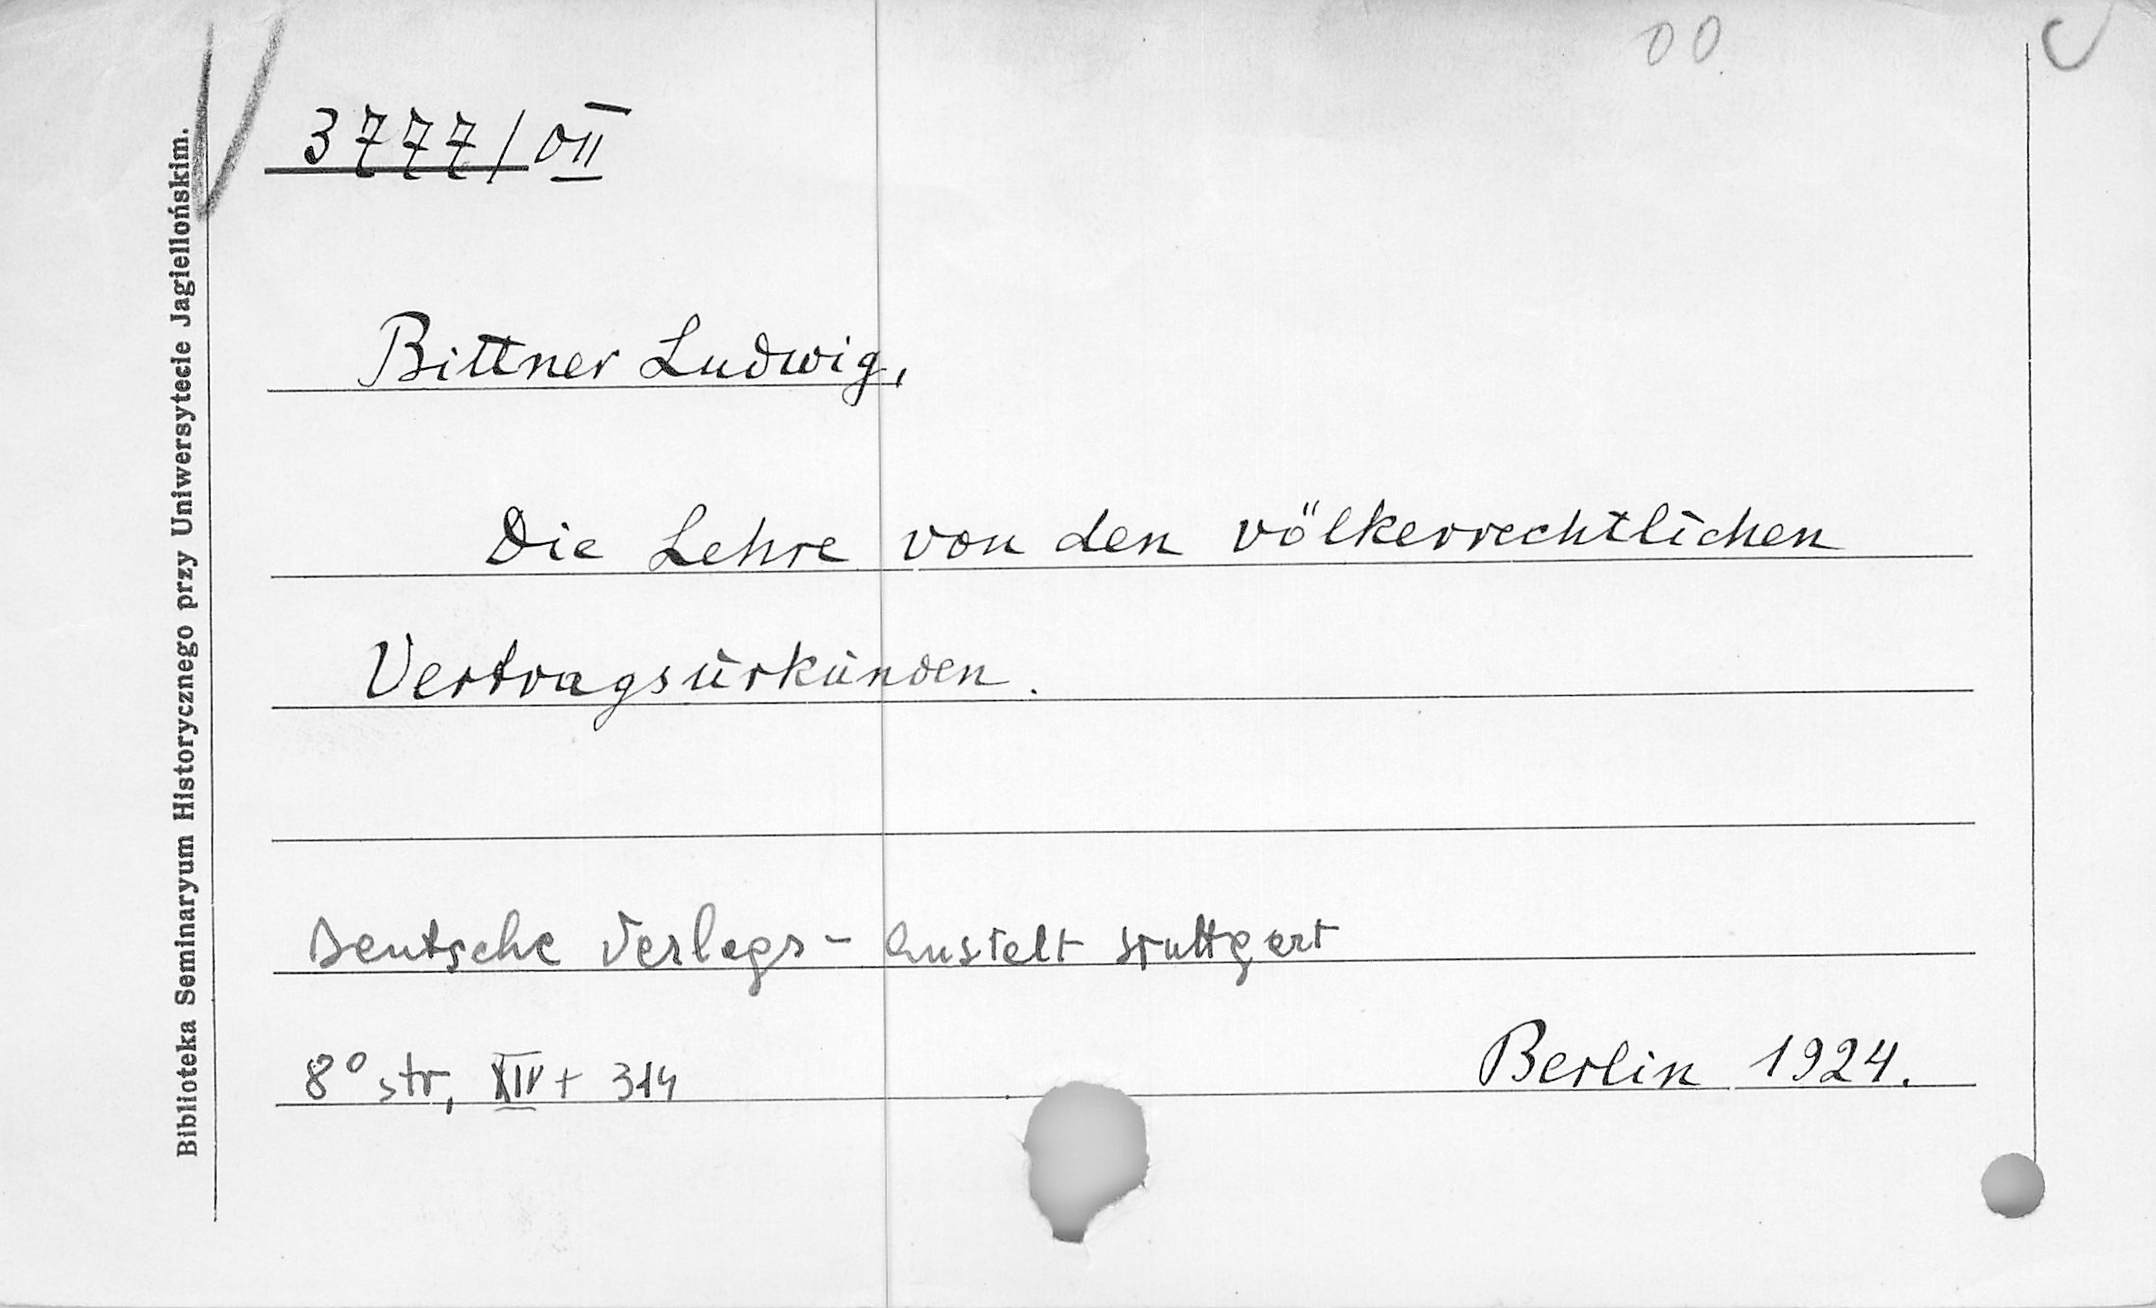 00
3777/0II
Bittner Ludwig,
Die Lehre von den völkerrechtlichen
Vertragsurkunden.
Deutsche Verlags-Anstalt Stuttgart
8° str, XIV + 314
Berlin 1924.
Biblioteka Seminaryum Historycznego przy Uniwersytecie Jagiellońskim.